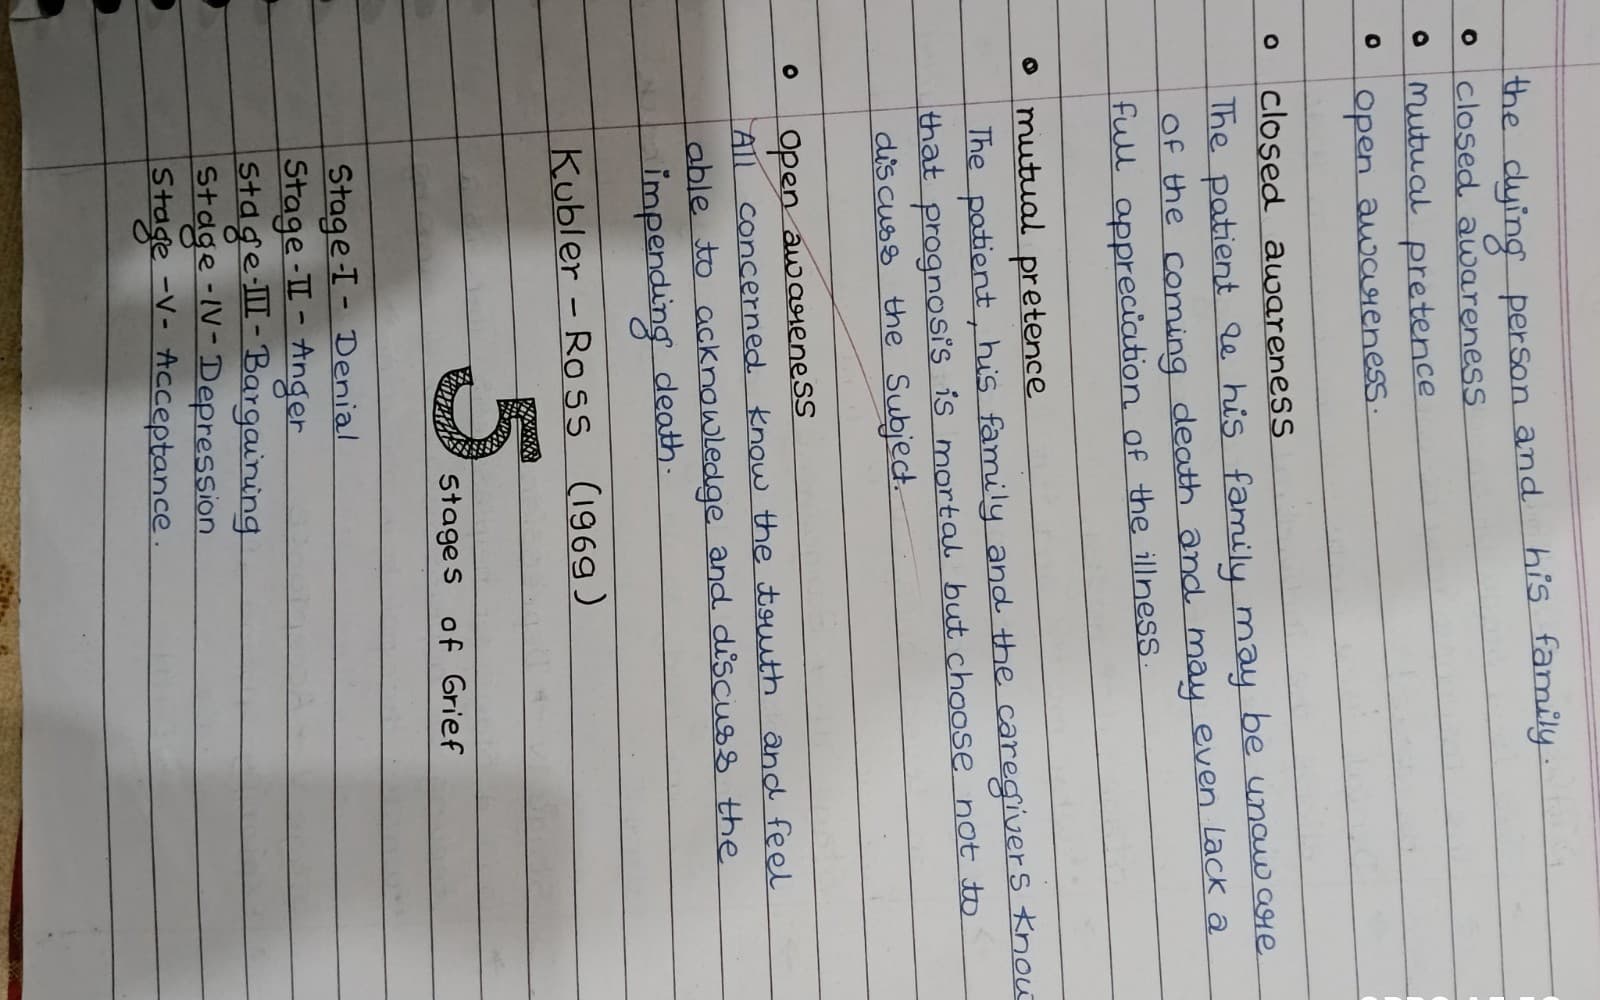 the dying person and his family.
• closed awareness
• mutual pretence
• open awareness.
• closed awareness
The patient & his family may be unaware
of the coming death and may even lack a
full appreciation of the illness.
• mutual pretence
The patient, his family and the caregivers know
that prognosis is mortal but choose not to
discuss the Subject.
• Open awareness
All concerned know the truth and feel
able to acknowledge and discuss the
impending death.
Kubler-Ross (1969)
5 stages of Grief
Stage-I - Denial
Stage-II - Anger
Stage-III - Bargaining
Stage-IV - Depression
Stage-V - Acceptance.